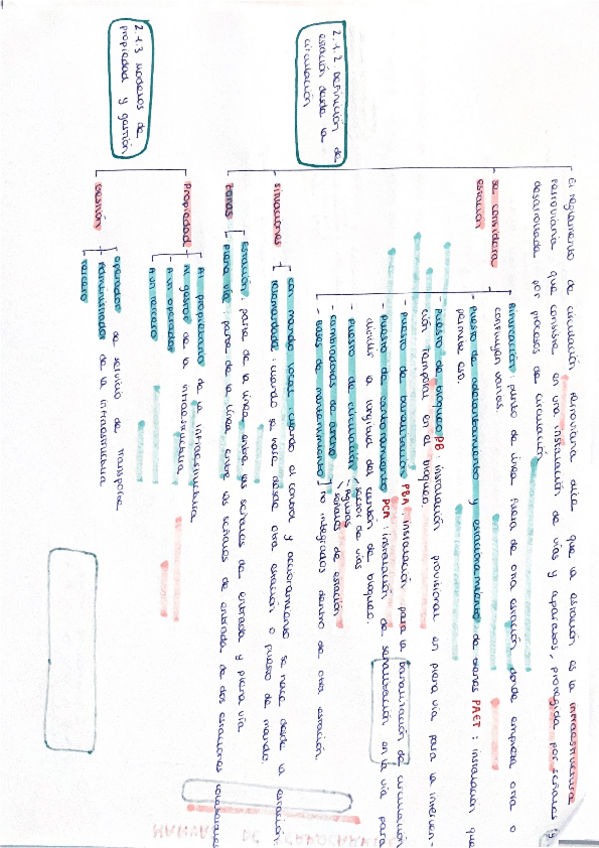 2.1.2 Definición de
estación desde la
circulación
El reglamento de circulación ferroviaria dice que la estación es la infraestructura
ferroviaria que consiste en una instalación de vías y aparatos, protegida por señales y
desarrollada por procesos de circulación
Se considera
estación
Bifurcación: punto de línea fuera de otra estación donde empieza otra o
confluyen varias.
- Puesto de adelantamiento y estacionamiento de trenes PAET: instalación que
permite eso.
- Puesto de bloqueo PB: instalación provisional en plena vía para la interven-
ción temporal en el bloqueo.
- Puesto de banalización PBA: instalación para la banalización de circulación
- Puesto de cantonamiento PCA: instalación de señalización en la vía para
dividir la longitud del cantón de bloqueo.
- Puesto de circulación
sector de vías
agujas
señales de estación
- Cambiadores de ancho
- Bases de mantenimiento
no integrados dentro de otra estación.
Situaciones
Con mando local: cuando el control y accionamiento se hace desde la estación
Telemandada: cuando se hace desde otra estación o puesto de mando.
Zonas
Estación: parte de la línea entre las señales de entrada y plena vía
Plena vía: parte de la línea entre las señales de entrada de dos estaciones colaterales
2.1.3 Modelos de
propiedad y gestión
Propiedad
Al propietario de la infraestructura
Al gestor de la infraestructura
A un operador
A un tercero
Gestión
Operador de servicio de transporte
Administrador de la infraestructura
Tercero